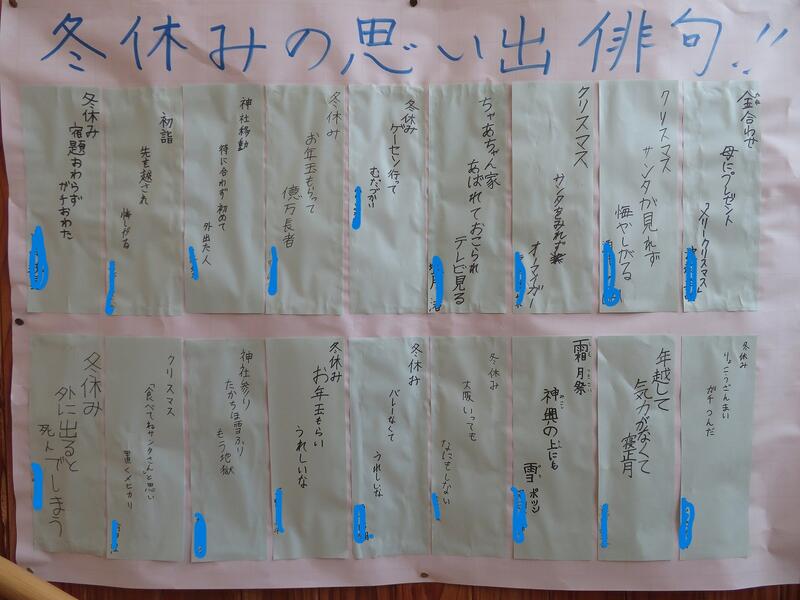 冬休みの思い出俳句!!
釜合わせ
母にプレゼント
メリークリスマス
クリスマス
サンタが見れず
悔やしがる
クリスマス
サンタをみれず
オーマイガー
ちゃあちゃん家
あばれておこられ
テレビ見る
冬休み
ゲーセン行って
むだづかい
冬休み
お年玉もらって
億万長者
神社移動
特に合わず初めて
外出た人
初詣
先を越され
悔やがる
冬休み
宿題おわらず
ガチおわた
冬休み
りょこうざんまい
ガチつんだ
年越して
気力がなくて
寝正月
霜月祭
神輿の上にも
雪 ポツン
冬休み
大阪いっても
なにもしない
冬休み
バレーなくて
うれしいな
冬休み
お年玉もらい
うれしいな
神社参り
たかちほ雪ふり
もう地獄
クリスマス
「食べてねサンタさん」と思い
置くメヒカリ
冬休み
外に出ると
死んでしまう